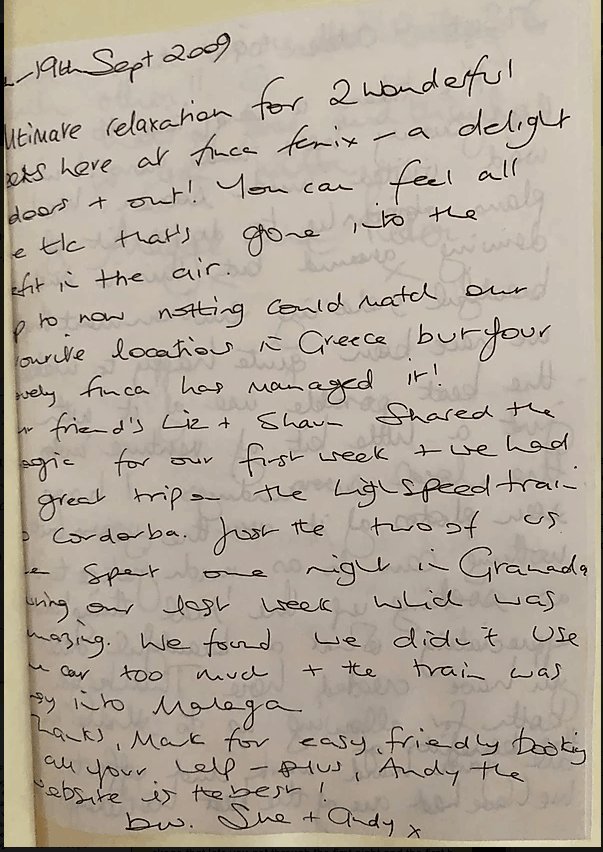 -19th Sept 2009
ltimate relaxation for 2 wonderful
eeks here at finca fenix - a delight
doors + out! You can feel all
e tlc that's gone into the
efit in the air.
p to now nothing could match our
ourite locations in Greece but your
vely finca has managed it!
ur friend's Liz + Shaun shared the
agic for our first week + we had
great trip on the high speed train
o Cordorba. Just the two of us
e spent one night in Granada
uring our last week which was
mazing. We found we didn't use
e car too much + the train was
sy into Malaga
hanks, Mark for easy, friendly booking
all your help - plus, Andy the
ebsite is the best!
bw. Sue + Andy x